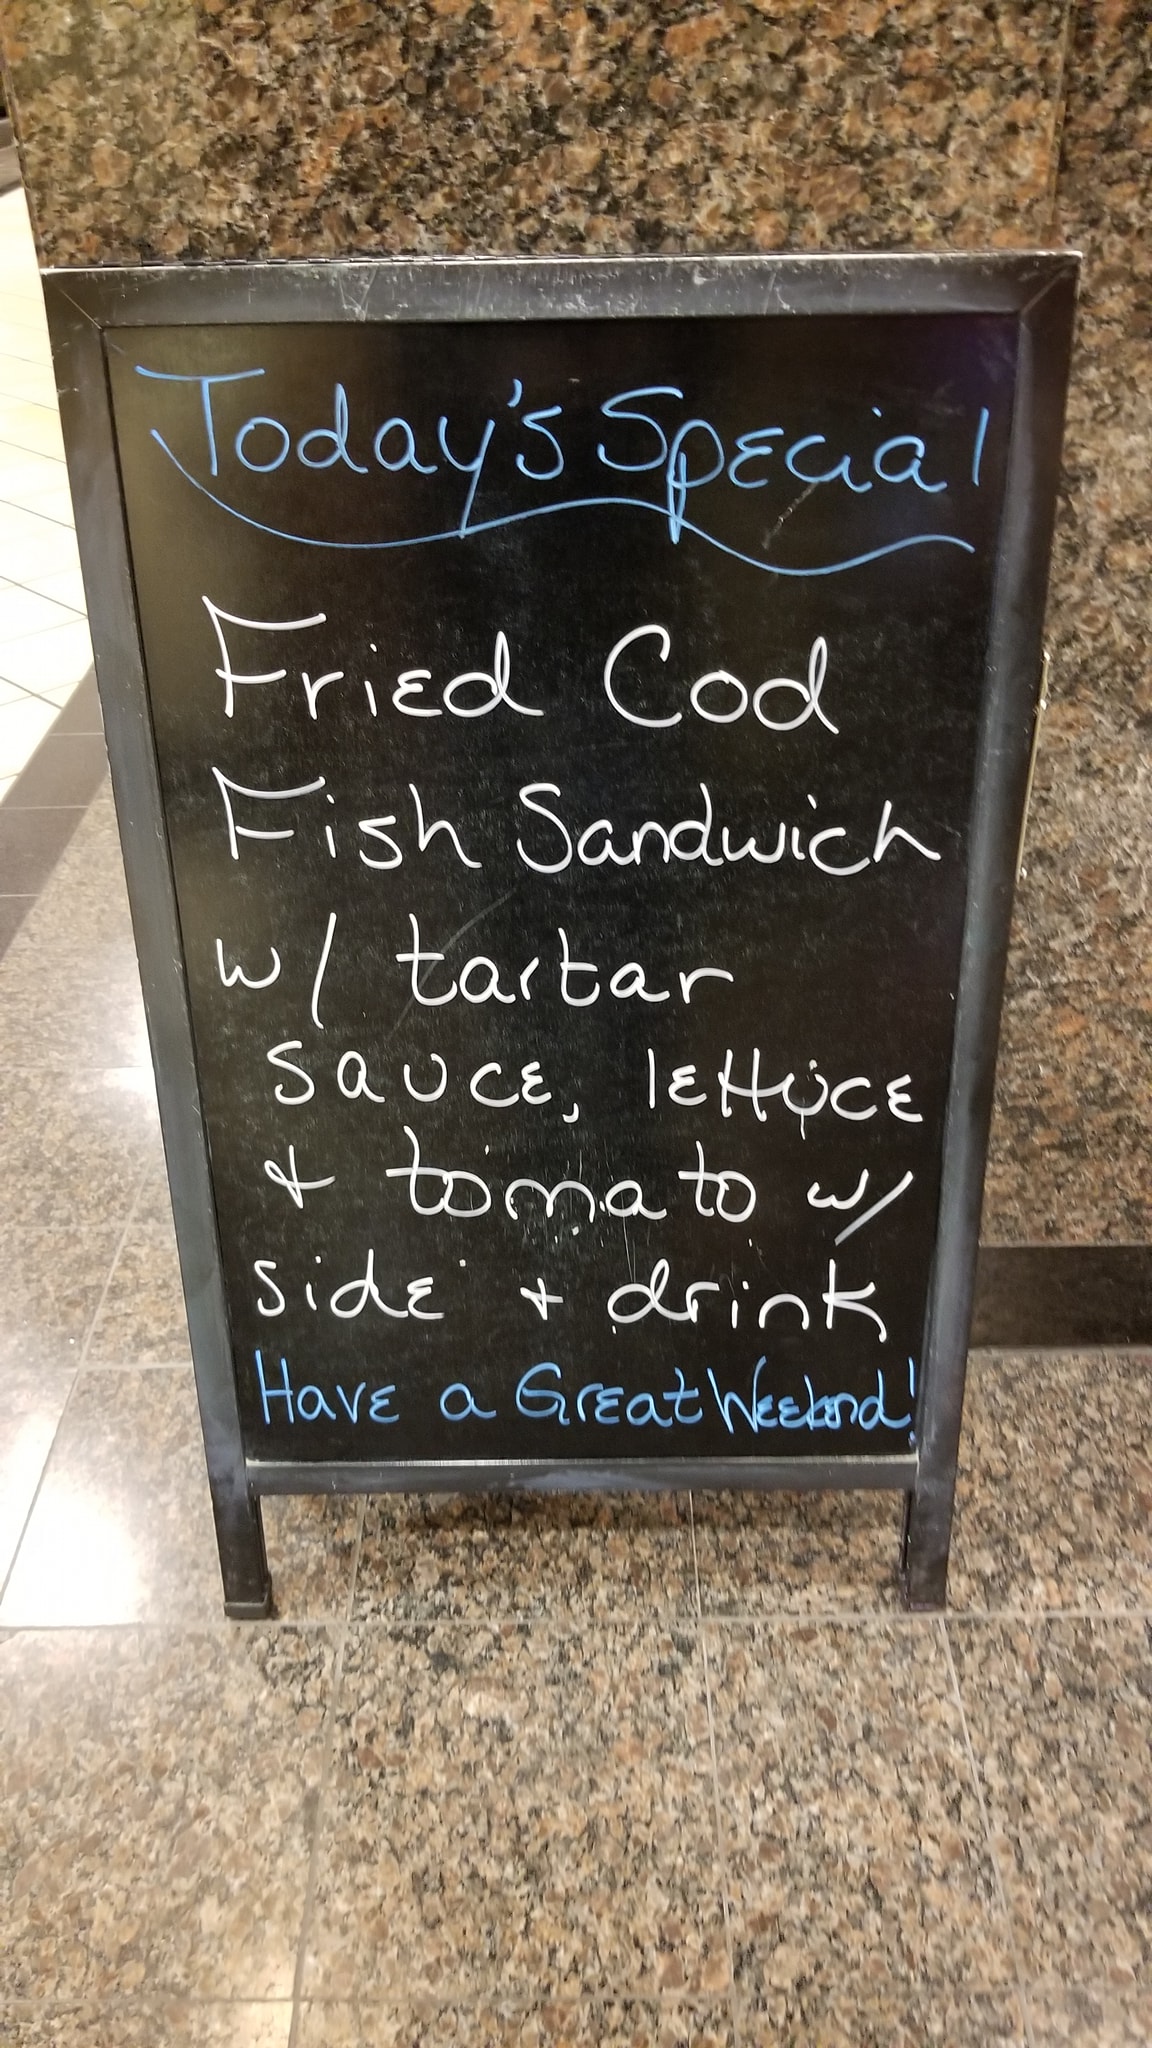 Today's Special
Fried Cod
Fish Sandwich
w/ tartar
sauce, lettuce
& tomato w/
side & drink
Have a Great Weekend!